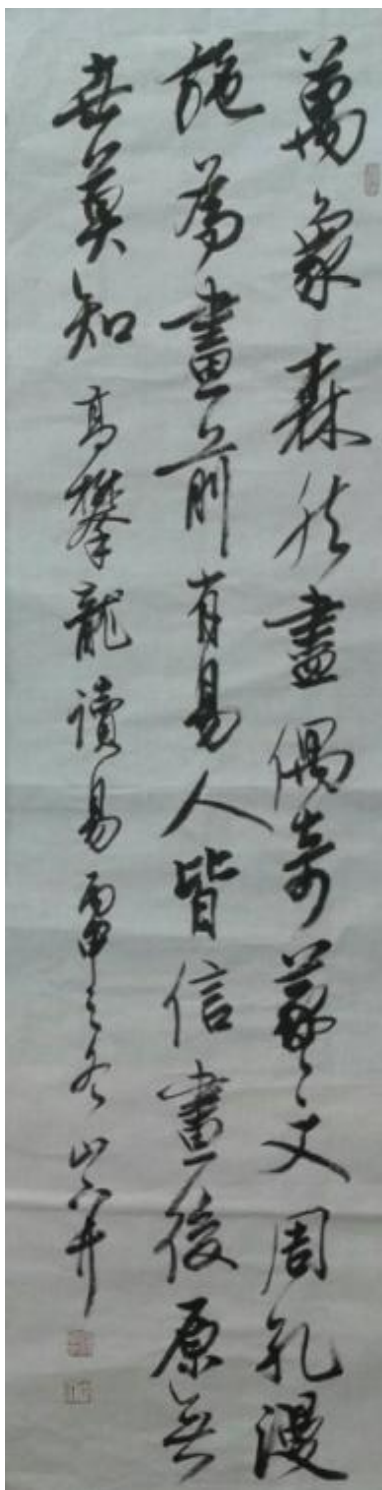 萬象森然盡偶奇羲文周孔漫
施為畫前有易人皆信畫後原無
世莫知 高攀龍讀易 丙申之冬